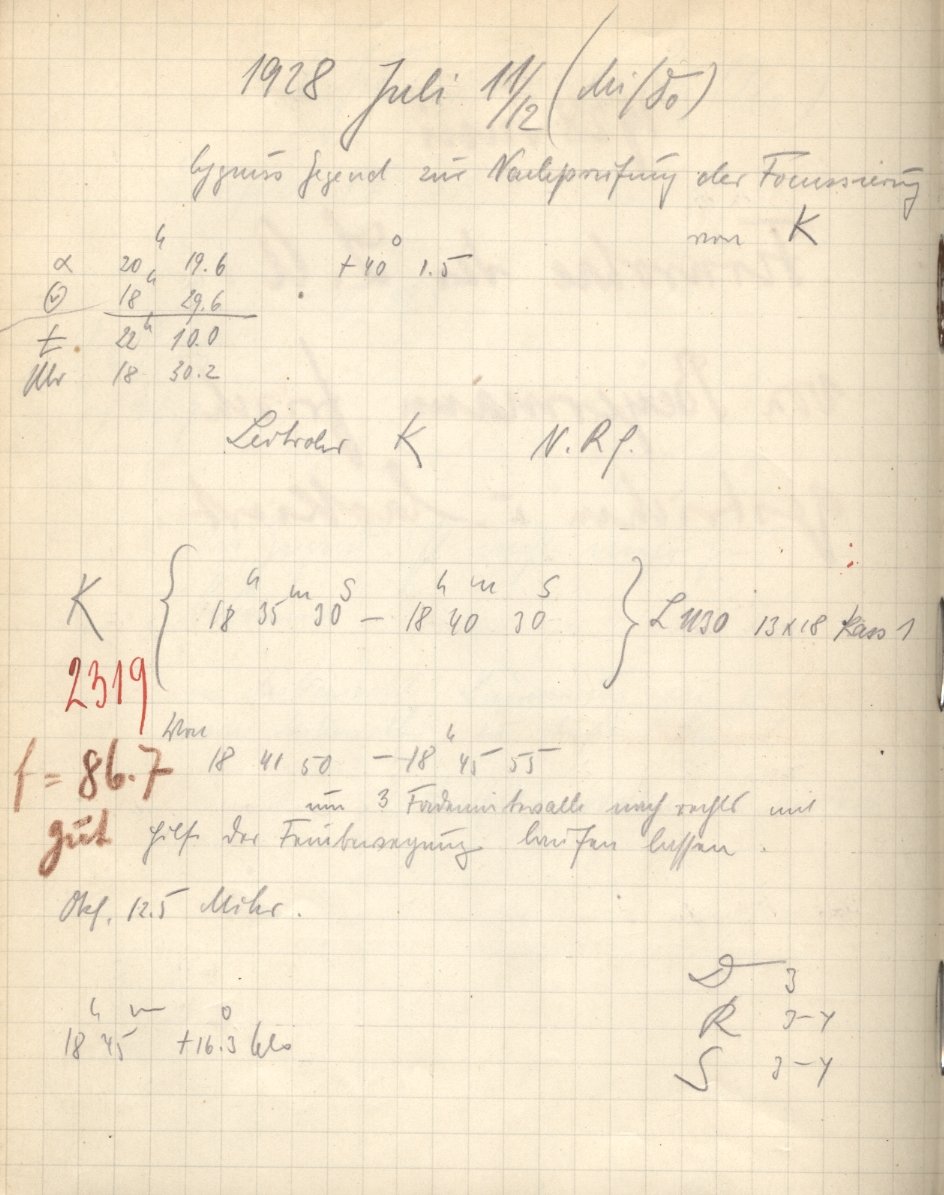 1928 Juli 11/12 (Mi/Do)
Cygnus Gegend zur Nachprüfung der Focussierung
von K
α 20h 19.6 +40° 1.5
18h 29.6
t 22h 10.0
Uhr 18 30.2
Leitrohr K N.R.f.
K { 18h 35m 30s – 18h 40m 30s } L 1130 13x18 Kass 1
2319
Von 18 41 50 – 18h 45 55
f = 86.7
um 3 Fadenintervalle nach rechts mit
gut
Hilfe der Feinbewegung laufen lassen.
Okf. 12.5 Mikr.
D 3
18h 45m +16.3°
R 3–4
S 3–4